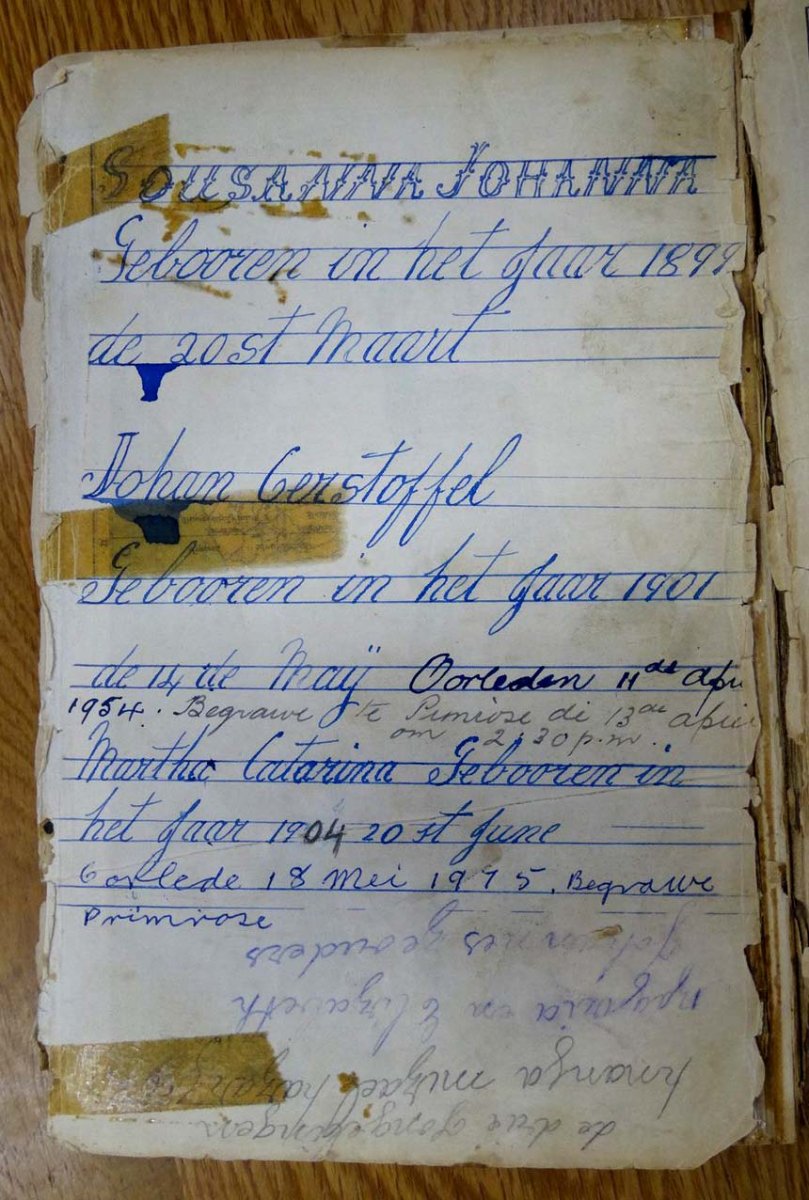 SOUSANNA JOHANNA
Gebooren in het Jaar 1899
de 20st Maart
Johan Cerstoffel
Gebooren in het Jaar 1901
de 14 de Maÿ Oorleden 11de Apri
1954. Begrawe te Primrose di 13de April
om 2:30 p.m.
Martha Catarina Gebooren in
het Jaar 1904 20 st June
Oorlede 18 Mei 1975. Begrawe
Primrose
de drie Jongelingen
misael
en Elizabeth